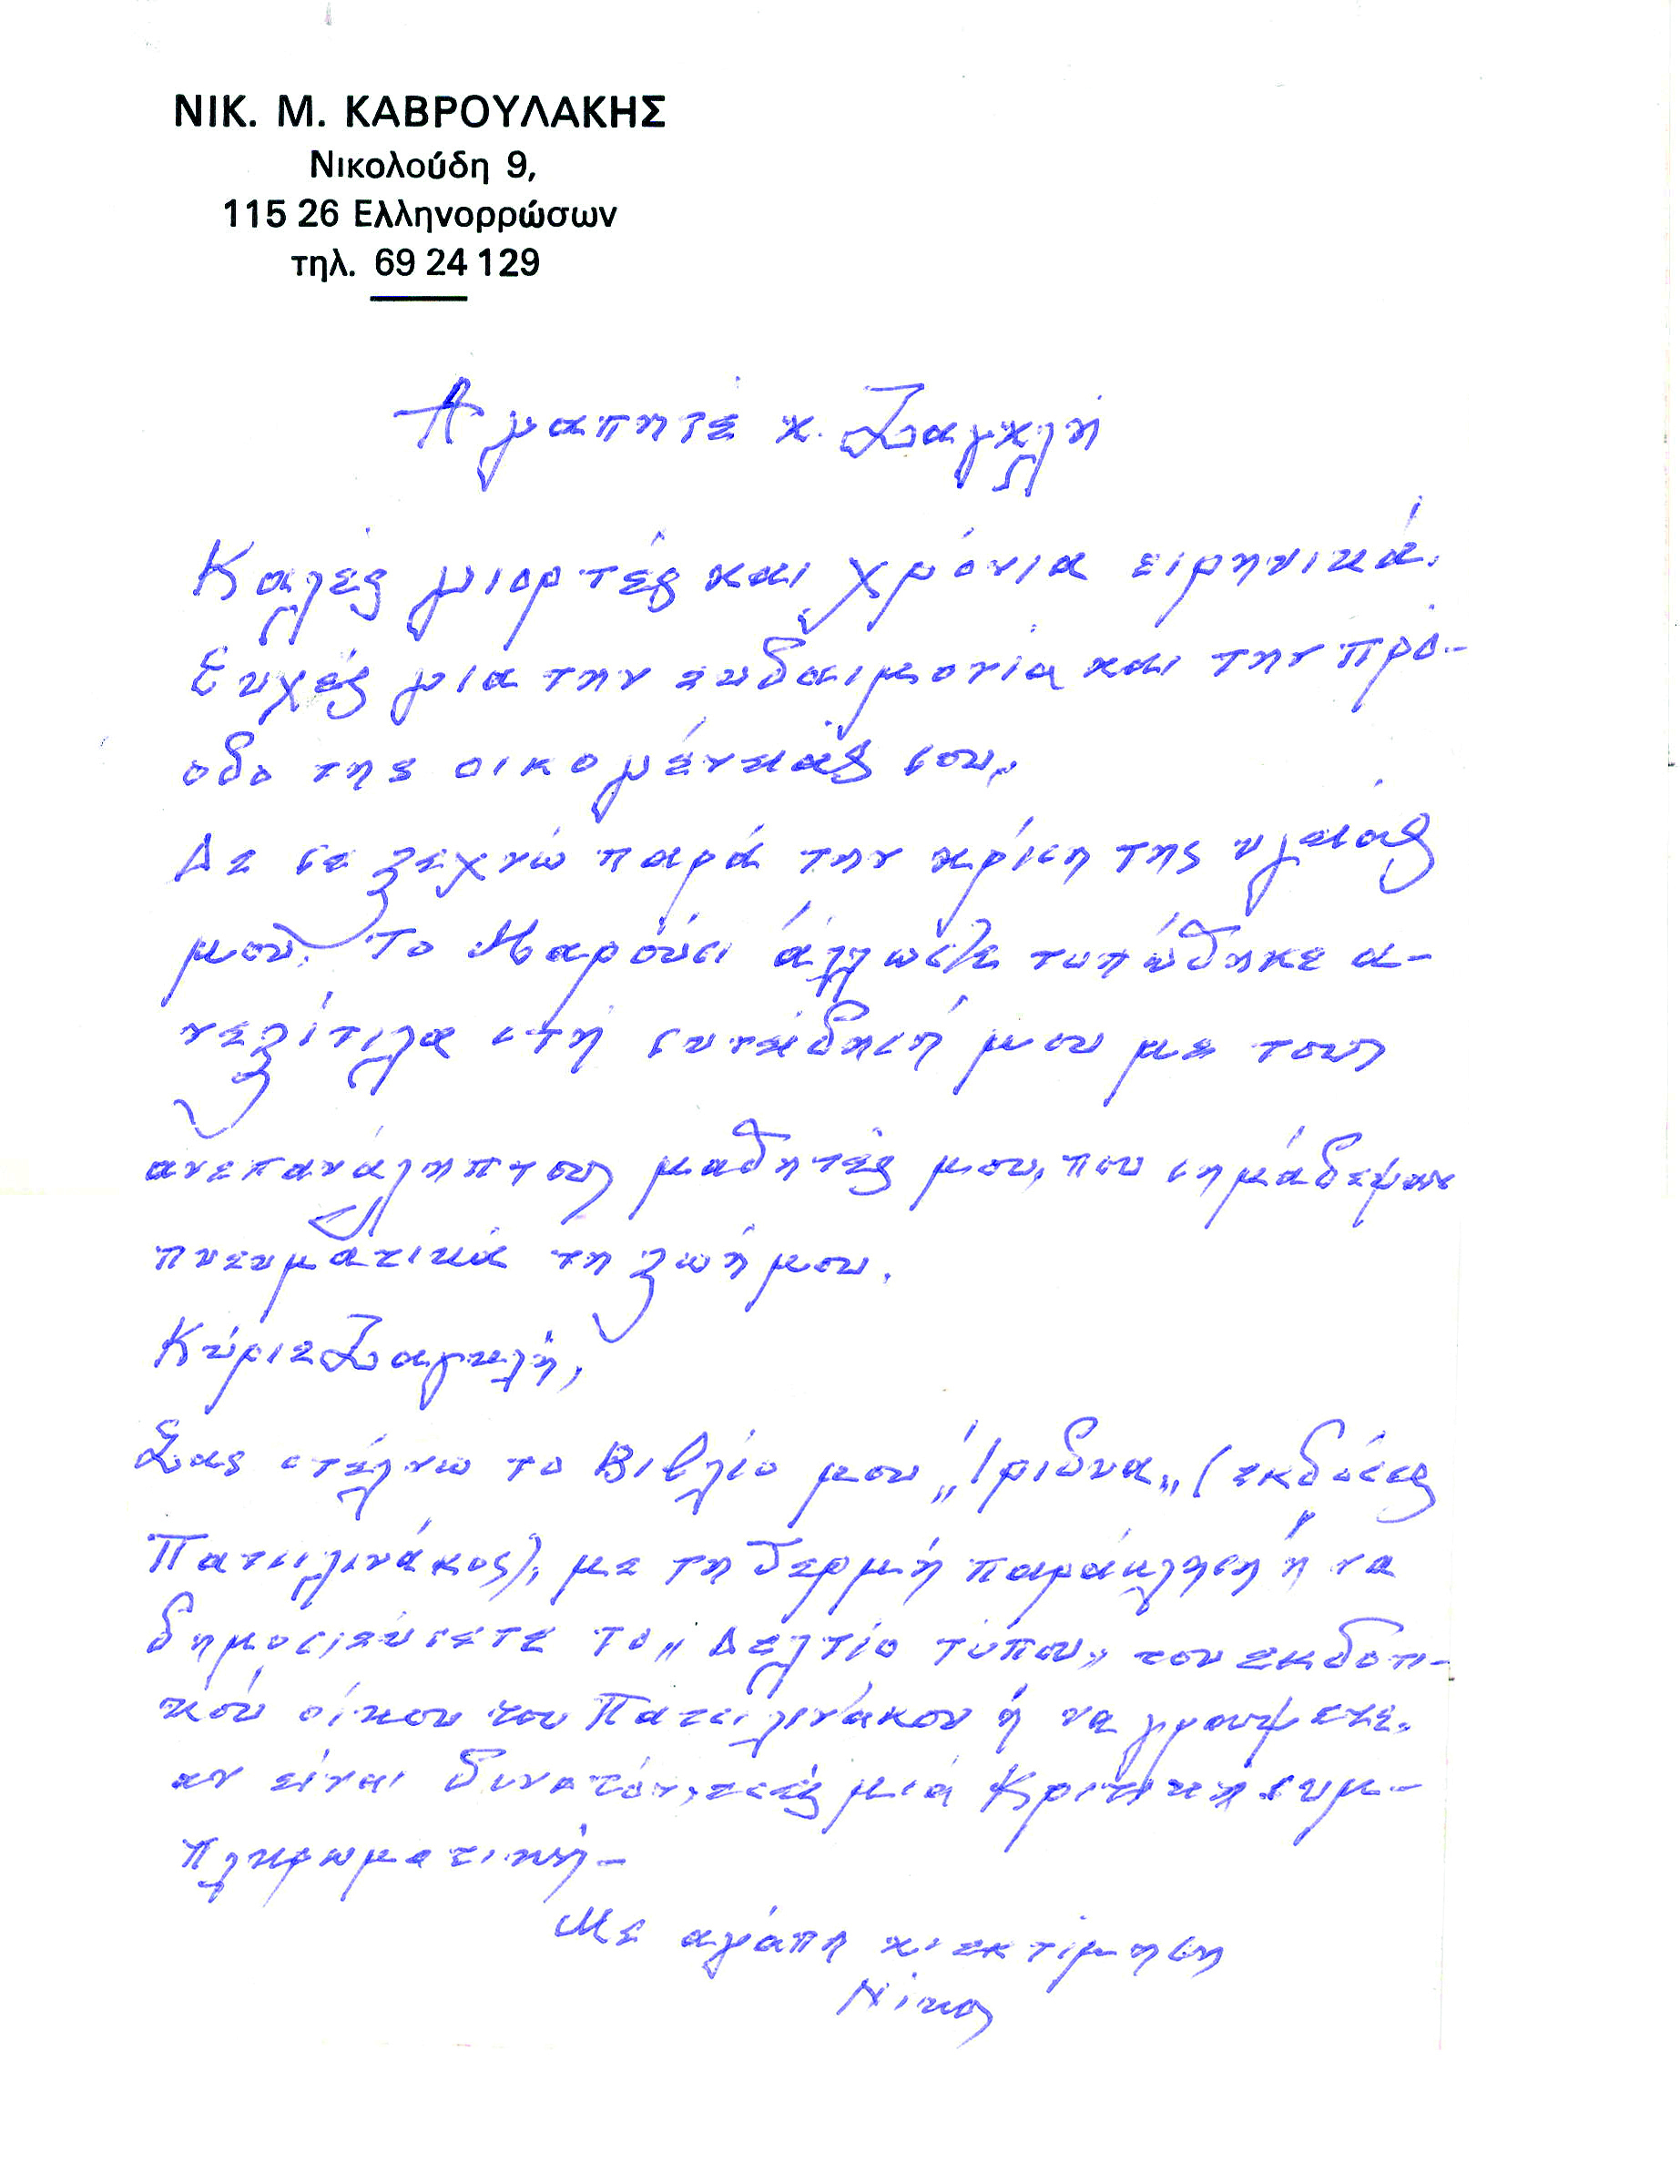 ΝΙΚ. Μ. ΚΑΒΡΟΥΛΑΚΗΣ
Νικολούδη 9,
115 26 Ελληνορρώσων
τηλ. 69 24 129
Αγαπητέ κ. Σαγκλή
Καλές γιορτές και χρόνια ειρηνικά.
Ευχές για την ευδαιμονία και την πρό-
οδο της οικογένειάς σου.
Δε σε ξεχνώ παρά την κρίση της υγείας
μου. Το Μαρούσι άλλωστε τυπώθηκε α-
νεξίτηλα στη συνείδησή μου με τους
ανεπανάληπτους μαθητές μου, που σημάδεψαν
πνευματικά τη ζωή μου.
Κύριε Σαγκλή,
Σας στέλνω το Βιβλίο μου „ (εκδόσεις
Πατσιλινάκος), με τη θερμή παράκληση ή να
δημοσιεύσετε το „Δελτίο τύπου„ του εκδοτι-
κού οίκου του Πατσιλινάκου ή να γράψετε,
αν είναι δυνατόν, εσείς μιά Κριτική συμ-
πληρωματική-
Με αγάπη κ' εκτίμηση
Νίκος